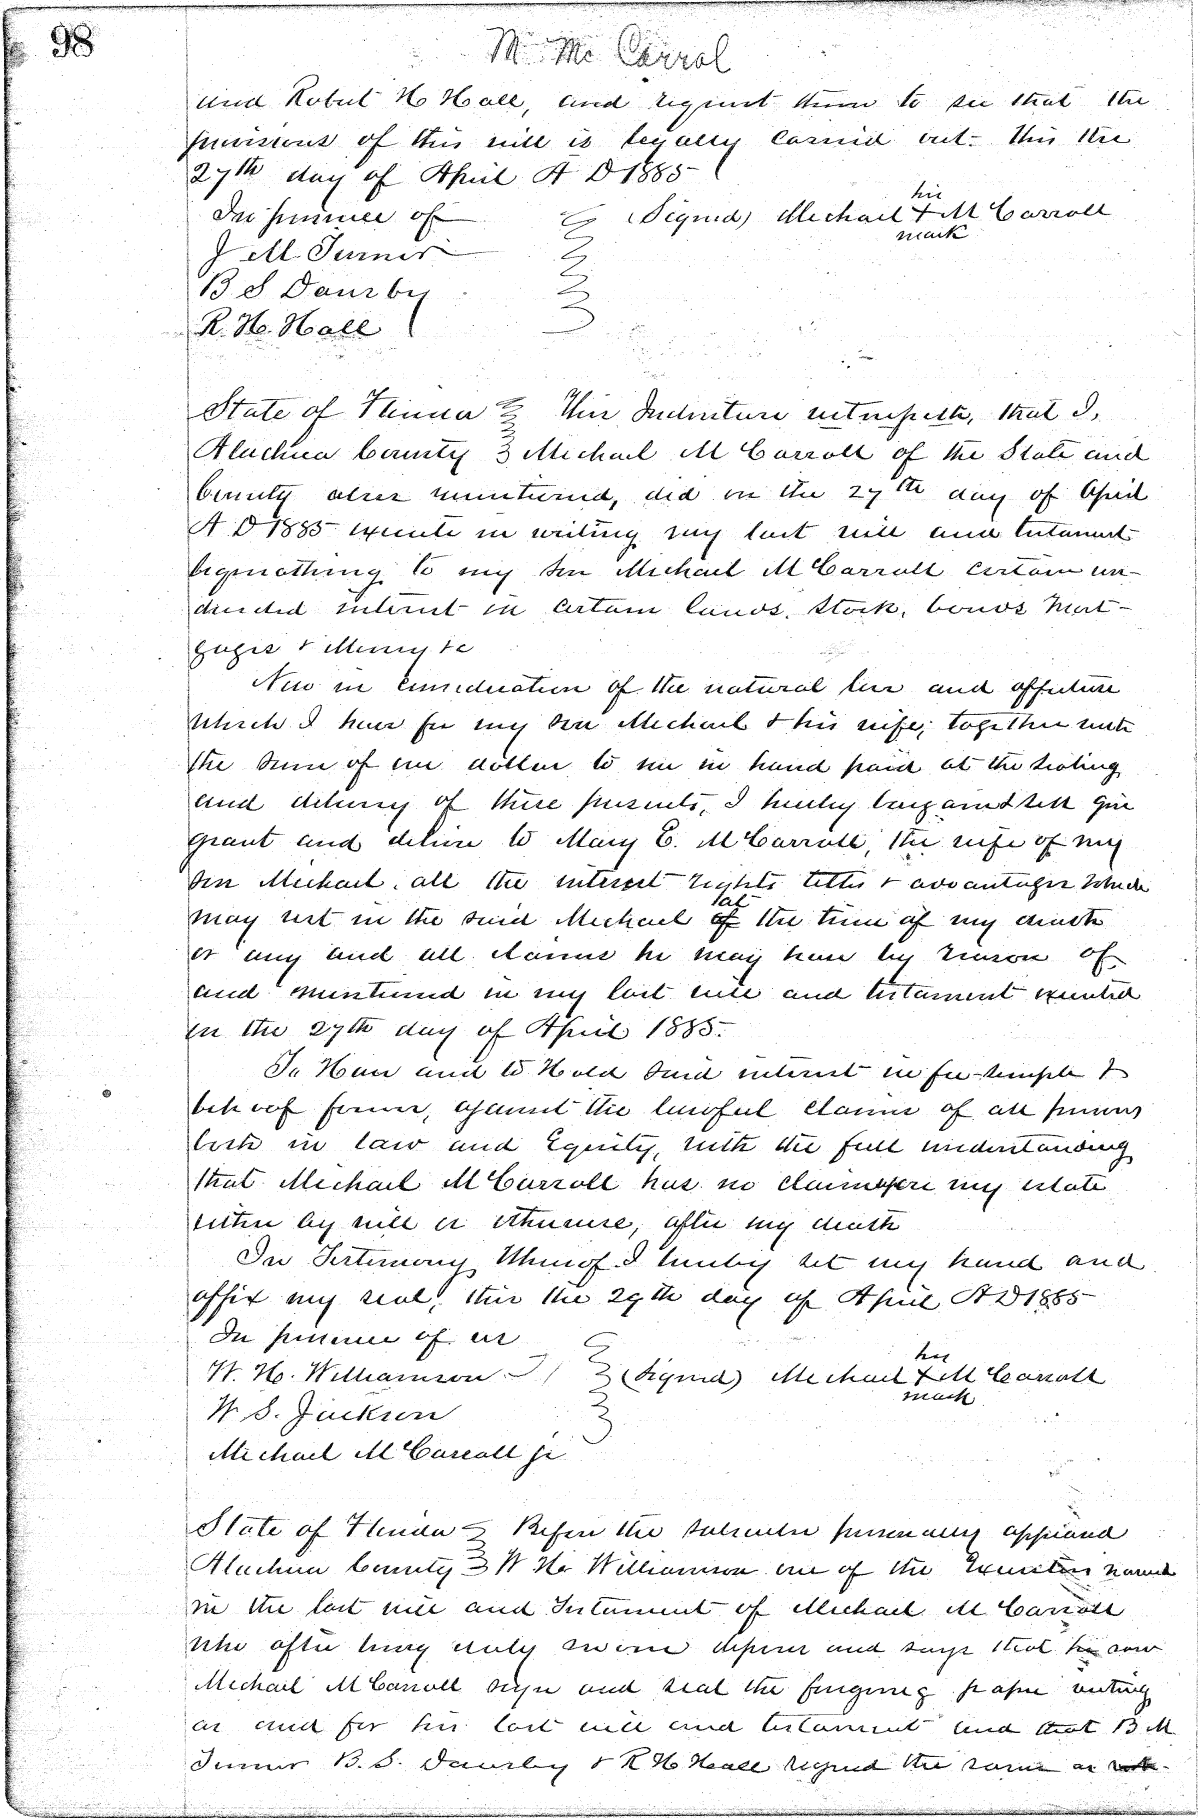 98
M. Mc Carrol
and Robert H Hall, and request them to see that the
provisions of this will is legally carried out. This the
27th day of April A D 1885
In presence of (Signed) Michael his + mark M Carroll
J M. Turner
B S Daurby
R. H. Hall
State of Florida This Indenture witnesseth, that I,
Alachua County Michael M Carroll of the State and
County above mentioned, did on the 27th day of April
A. D 1885 execute in writing my last will and testament
bequeathing to my son Michael M Carroll certain un-
divided interest in certain lands, stock, bonds Mort-
gages & Money &c
Now in consideration of the natural love and affection
which I have for my son Michael & his wife, together with
the sum of one dollar to me in hand paid at the sealing
and delivery of these presents, I hereby bargain & sell give
grant and deliver to Mary E. M Carroll, the wife of my
son Michael, all the interest rights titles & advantages which
may rest in the said Michael at the time of my death
or any and all claims he may have by reason of
and mentioned in my last will and testament executed
on the 27th day of April 1885.
To Have and to Hold said interest in fee-simple &
behoof forever, against the lawful claims of all persons
both in law and Equity, with the full understanding
that Michael M Carroll has no claim upon my estate
either by will or otherwise, after my death
In Testimony Whereof I hereby set my hand and
affix my seal, this the 29th day of April A D 1885
In presence of us
W. H. Williamson (Signed) Michael his + mark M Carroll
W S. Jackson
Michael M Carroll jr
State of Florida Before the subscriber personally appeared
Alachua County W H. Williamson one of the Executors named
in the last will and Testament of Michael M Carroll
who after being duly sworn deposes and says that he saw
Michael M Carroll sign and seal the foregoing paper writing
as and for his last will and testament and that B M
Turner B. S. Daurby & R H Hall signed the same as